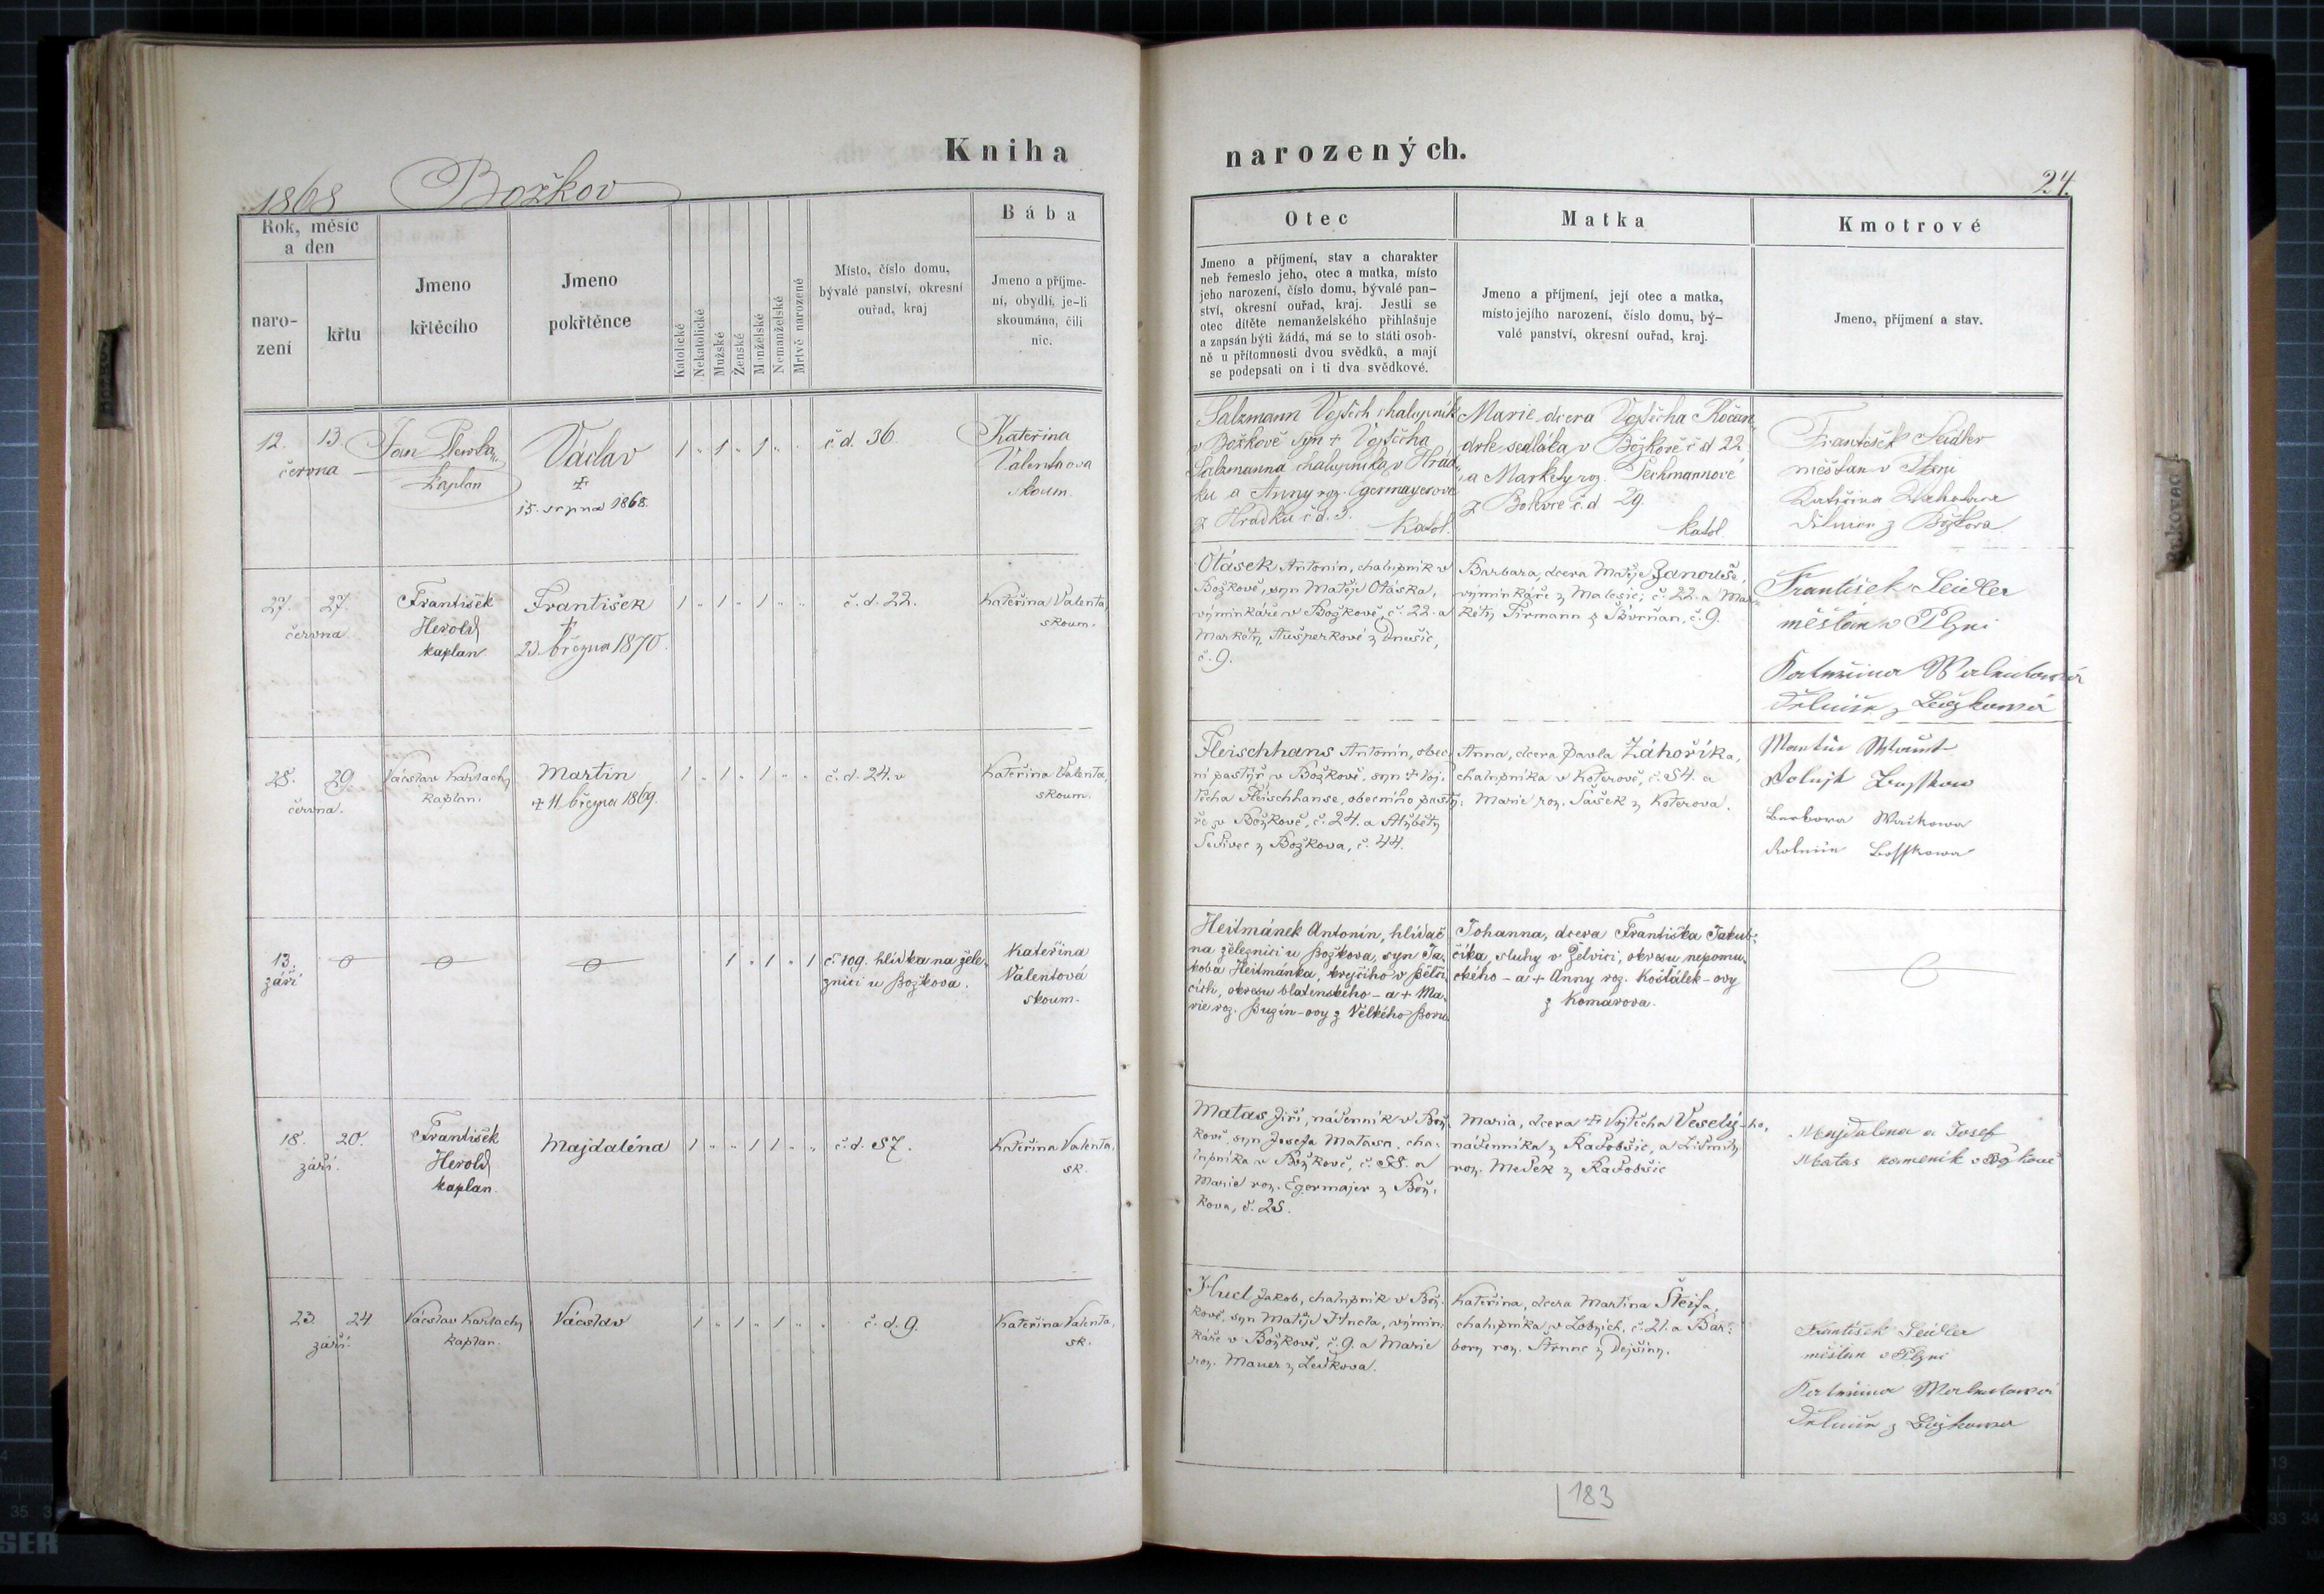 Kniha
narozených.
1868 Božkov
24.
Rok, měsíc
a den
naro-
zení
křtu
Jmeno
křtěcího
Jmeno
pokřtěnce
Katolické
Nekatolické
Mužské
Ženské
Manželské
Nemanželské
Mrtvě narozené
Místo, číslo domu,
bývalé panství, okresní
ouřad, kraj
Bába
Jmeno a příjme-
ní, obydlí, je-li
skoumána, čili
nic.
Otec
Jmeno a příjmení, stav a charakter
neb řemeslo jeho, otec a matka, místo
jeho narození, číslo domu, bývalé pan-
ství, okresní ouřad, kraj. Jestli se
otec dítěte nemanželského přihlašuje
a zapsán býti žádá, má se to státi osob-
ně u přítomnosti dvou svědků, a mají
se podepsati on i ti dva svědkové.
Matka
Jmeno a příjmení, její otec a matka,
místo jejího narození, číslo domu, bý-
valé panství, okresní ouřad, kraj.
Kmotrové
Jmeno, příjmení a stav.
12. 13.
června
Jan
kaplan
Václav
+
15. srpna 1868.
1 „ 1 „ 1 „ „
č d. 36.
Kateřina
Valentaova
skoum.
Salzmann Vojtěch chalupník
v Božkově syn + Vojtěcha
Salzmanna chalupníka v Hrád
ku a Anny roz. Egermayerove
z Hrádku č d. 3.
Katol.
Marie dcera Vojtěcha Kočan
drle sedláka v Božkově č d 22
a Markety roz. Pechmannové
z Bolevce č. d 29.
katol.
František Seidler
měšťan v Plzni
Kateřina
z Božkova
27. 27.
června
František
Herold
kaplan
František
+
23. března 1870.
1 „ 1 „ 1 „ „
č. d. 22.
Kateřina Valenta,
skoum.
Otásek Antonín, chalupník v
Božkově, syn Matěje Otáska,
výminkáře v Božkově, č. 22. a
Markéty Aušperkové z Dnešic,
č. 9.
Barbara, dcera Matěje Janouše,
výminkáře z Malesic, č. 22. a Mar-
kéty Firmann z Skvrňan, č. 9.
František Seidler
měšťan v Plzni
28. 29.
června.
Václav Karlach
kaplan.
Martin
+ 11 března 1869.
1 „ 1 „ 1 „ „
č. d. 24. v
Kateřina Valenta,
skoum.
Fleischhans Antonín, obec-
ní pastýř v Božkově, syn + Voj-
těcha Fleischhanse, obecního pastý-
ře v Božkově, č. 24. a Alžběty
Sedivec z Božkova, č. 44.
Anna, dcera Pavla Záhoříka,
chalupníka v Koterově, č. 54. a
Marie roz. Sašek z Koterova.
Martin
Barbora
13.
září
1 „ 1 „ 1
č 109. hlídka na žele-
znici u Božkova.
Kateřina
Valentová
skoum.
Heitmánek Antonín, hlídač
na železnici u Božkova, syn Ja-
koba Heitmánka, krejčího v Bělči-
cích, okresu blatenského - a + Ma-
rie roz. Bugín-ovy z Velkého Boru
Johanna, dcera Františka Jakub-
číka, sluhy v Želvici, okresu nepomu-
ckého - a + Anny roz. Košťálek-ovy
z Komárova.
18. 20.
září.
František
Herold
kaplan.
Majdaléna
1 „ „ 1 1 „ „
č. d. 57.
Kateřina Valenta,
sk.
Matas Jiří, nádenník v Bož-
kově, syn Josefa Matasa, cha-
lupníka v Božkově, č. 58. a
Marie roz. Egermajer z Bož-
kova, č. 25.
Maria, dcera + Vojtěcha Veselý-ho,
nádenníka z Radobšic, a Lidmily
roz. Medek z Radobšic
Majdalena a Josef
Matas kameník v Božkově
23. 24
září.
Václav Karlach
kaplan.
Václav
1 „ 1 „ 1 „ „
č. d. 9.
Kateřina Valenta,
sk.
Hucl Jakob, chalupník v Bož-
kově, syn Matěje Hucla, výmin-
káře v Božkově, č. 9. a Marie
roz. Mauer z Letkova.
Kateřina, dcera Martina Šteifa,
chalupníka v Lobzích, č. 21. a Bar-
bory roz. Strunc z Dejšiny.
František Seidler
měšťan v Plzni
183